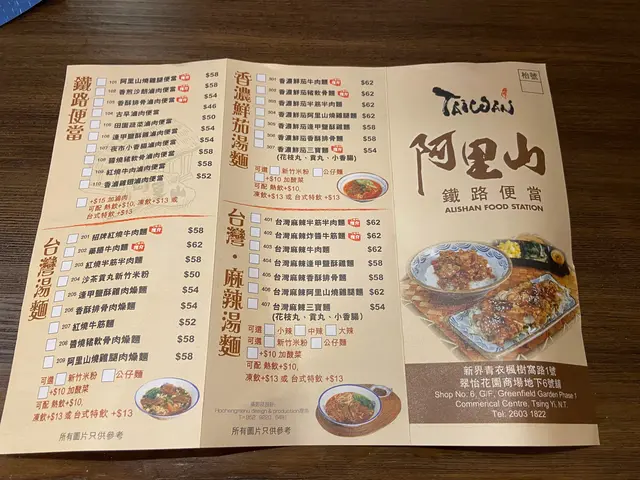 鐵路便當
101 阿里山燒雞腿便當 $58
102 香煎沙朗滷肉便當 $58
103 香酥排骨滷肉便當 $54
104 古早滷肉便當 $46
105 田園蔬菜滷肉便當 $50
106 遠甲鹽酥雞滷肉便當 $54
107 夜市小香腸滷肉便當 $50
108 醬燒豬軟骨滷肉便當 $58
109 紅燒牛肉滷肉便當 $58
110 香滷雞翅滷肉便當 $52
+$15 加滷肉
可配 熱飲+$10, 凍飲+$13 或
台式特飲 +$13
台灣湯麵
201 招牌紅燒牛肉麵 $58
202 藥膳牛肉麵 $62
203 紅燒半筋半肉麵 $58
204 沙茶貢丸新竹米粉 $50
205 遠甲鹽酥雞肉燥麵 $54
206 香酥排骨肉燥麵 $54
207 紅燒牛筋麵 $52
208 醬燒豬軟骨肉燥麵 $58
209 阿里山燒雞腿肉燥麵 $58
可選 新竹米粉 公仔麵
+$10 加酸菜
可配 熱飲+$10,
凍飲+$13 或 台式特飲 +$13
所有圖片只供參考
香濃鮮茄湯麵
301 香濃鮮茄牛肉麵 $62
302 香濃鮮茄豬軟骨麵 $62
303 香濃鮮茄半筋半肉麵 $62
304 香濃鮮茄阿里山燒雞腿麵 $62
305 香濃鮮茄遠甲鹽酥雞麵 $58
306 香濃鮮茄香酥排骨麵 $58
307 香濃鮮茄三寶麵 $54
(花枝丸、貢丸、小香腸)
可選 新竹米粉 公仔麵
+$10 加酸菜
可配 熱飲+$10,
凍飲+$13 或 台式特飲 +$13
台灣・麻辣湯麵
401 台灣麻辣半筋半肉麵 $62
402 台灣麻辣炸醬牛筋麵 $62
403 台灣麻辣牛肉麵 $62
404 台灣麻辣遠甲鹽酥雞麵 $58
405 台灣麻辣香酥排骨麵 $58
406 台灣麻辣阿里山燒雞腿麵 $62
407 台灣麻辣三寶麵 $54
(花枝丸、貢丸、小香腸)
可選 小辣 中辣 大辣
可選 新竹米粉 公仔麵
+$10 加酸菜
可配 熱飲+$10,
凍飲+$13 或 台式特飲 +$13
所有圖片只供參考
枱號
TAIWAN
阿里山
鐵路便當
ALISHAN FOOD STATION
新界青衣楓樹窩路1號
翠怡花園商場地下6號舖
Shop No: 6, G/F, Greenfield Garden Phase 1
Commerical Centre, Tsing Yi, N.T.
Tel: 2603 1822